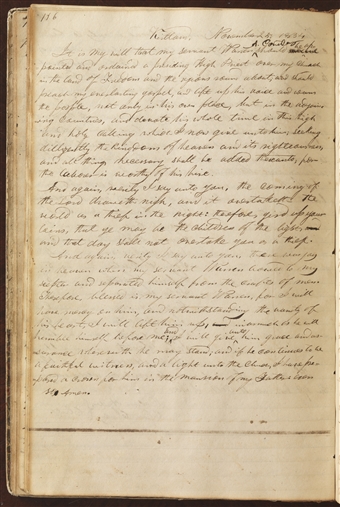 116
Kirtland. November 25, 1834
It is my will that my servant Warren A. Cowdery should be ap
pointed and ordained a presiding High Priest over my church
in the land of Freedom and the regions round about, and should
preach my everlasting gospel, and lift up his voice and warn
the people, not only in his own place, but in the adjoin
ing Counties, and devote his whole time in this high
and holy calling which I now give unto him, seeking
diligently the Kingdom of heaven and its righteousness
and all things necessary shall be added thereunto, for
the laborer is worthy of his hire.
And again, verily I say unto you, the coming of
the Lord draweth nigh, and it overtaketh the
world as a thief in the night: therefore, gird up your
loins, that ye may be the children of the light,
and that day shall not overtake you as a thief.
And again, verily I say unto you, there was joy
in heaven when my servant Warren bowed to my
scepter and separated himself from the crafts of men.
Therefore, blessed is my servant Warren, for I will
have mercy on him, and notwithstanding the vanity of
his heart, I will lift him up, inasmuch as he will
humble himself before me; and I will give unto him, grace and as
surance wherewith he may stand, and if he continues to be
a faithful witness, and a light unto the Church, I have pre
pared a crown for him in the mansions of my Father. Even
So Amen.